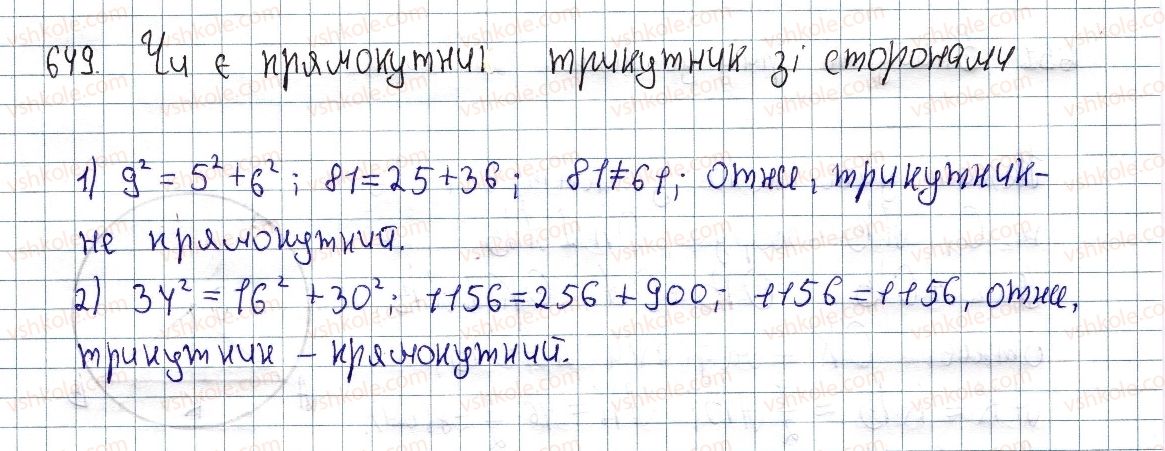 649. Чи є прямокутниі трикутник зі сторонами
1) 9² = 5² + 6²; 81 = 25 + 36; 81 ≠ 61; Отже, трикутник-
не прямокутний.
2) 34² = 16² + 30²; 1156 = 256 + 900; 1156 = 1156, отже,
трикутник – прямокутний.